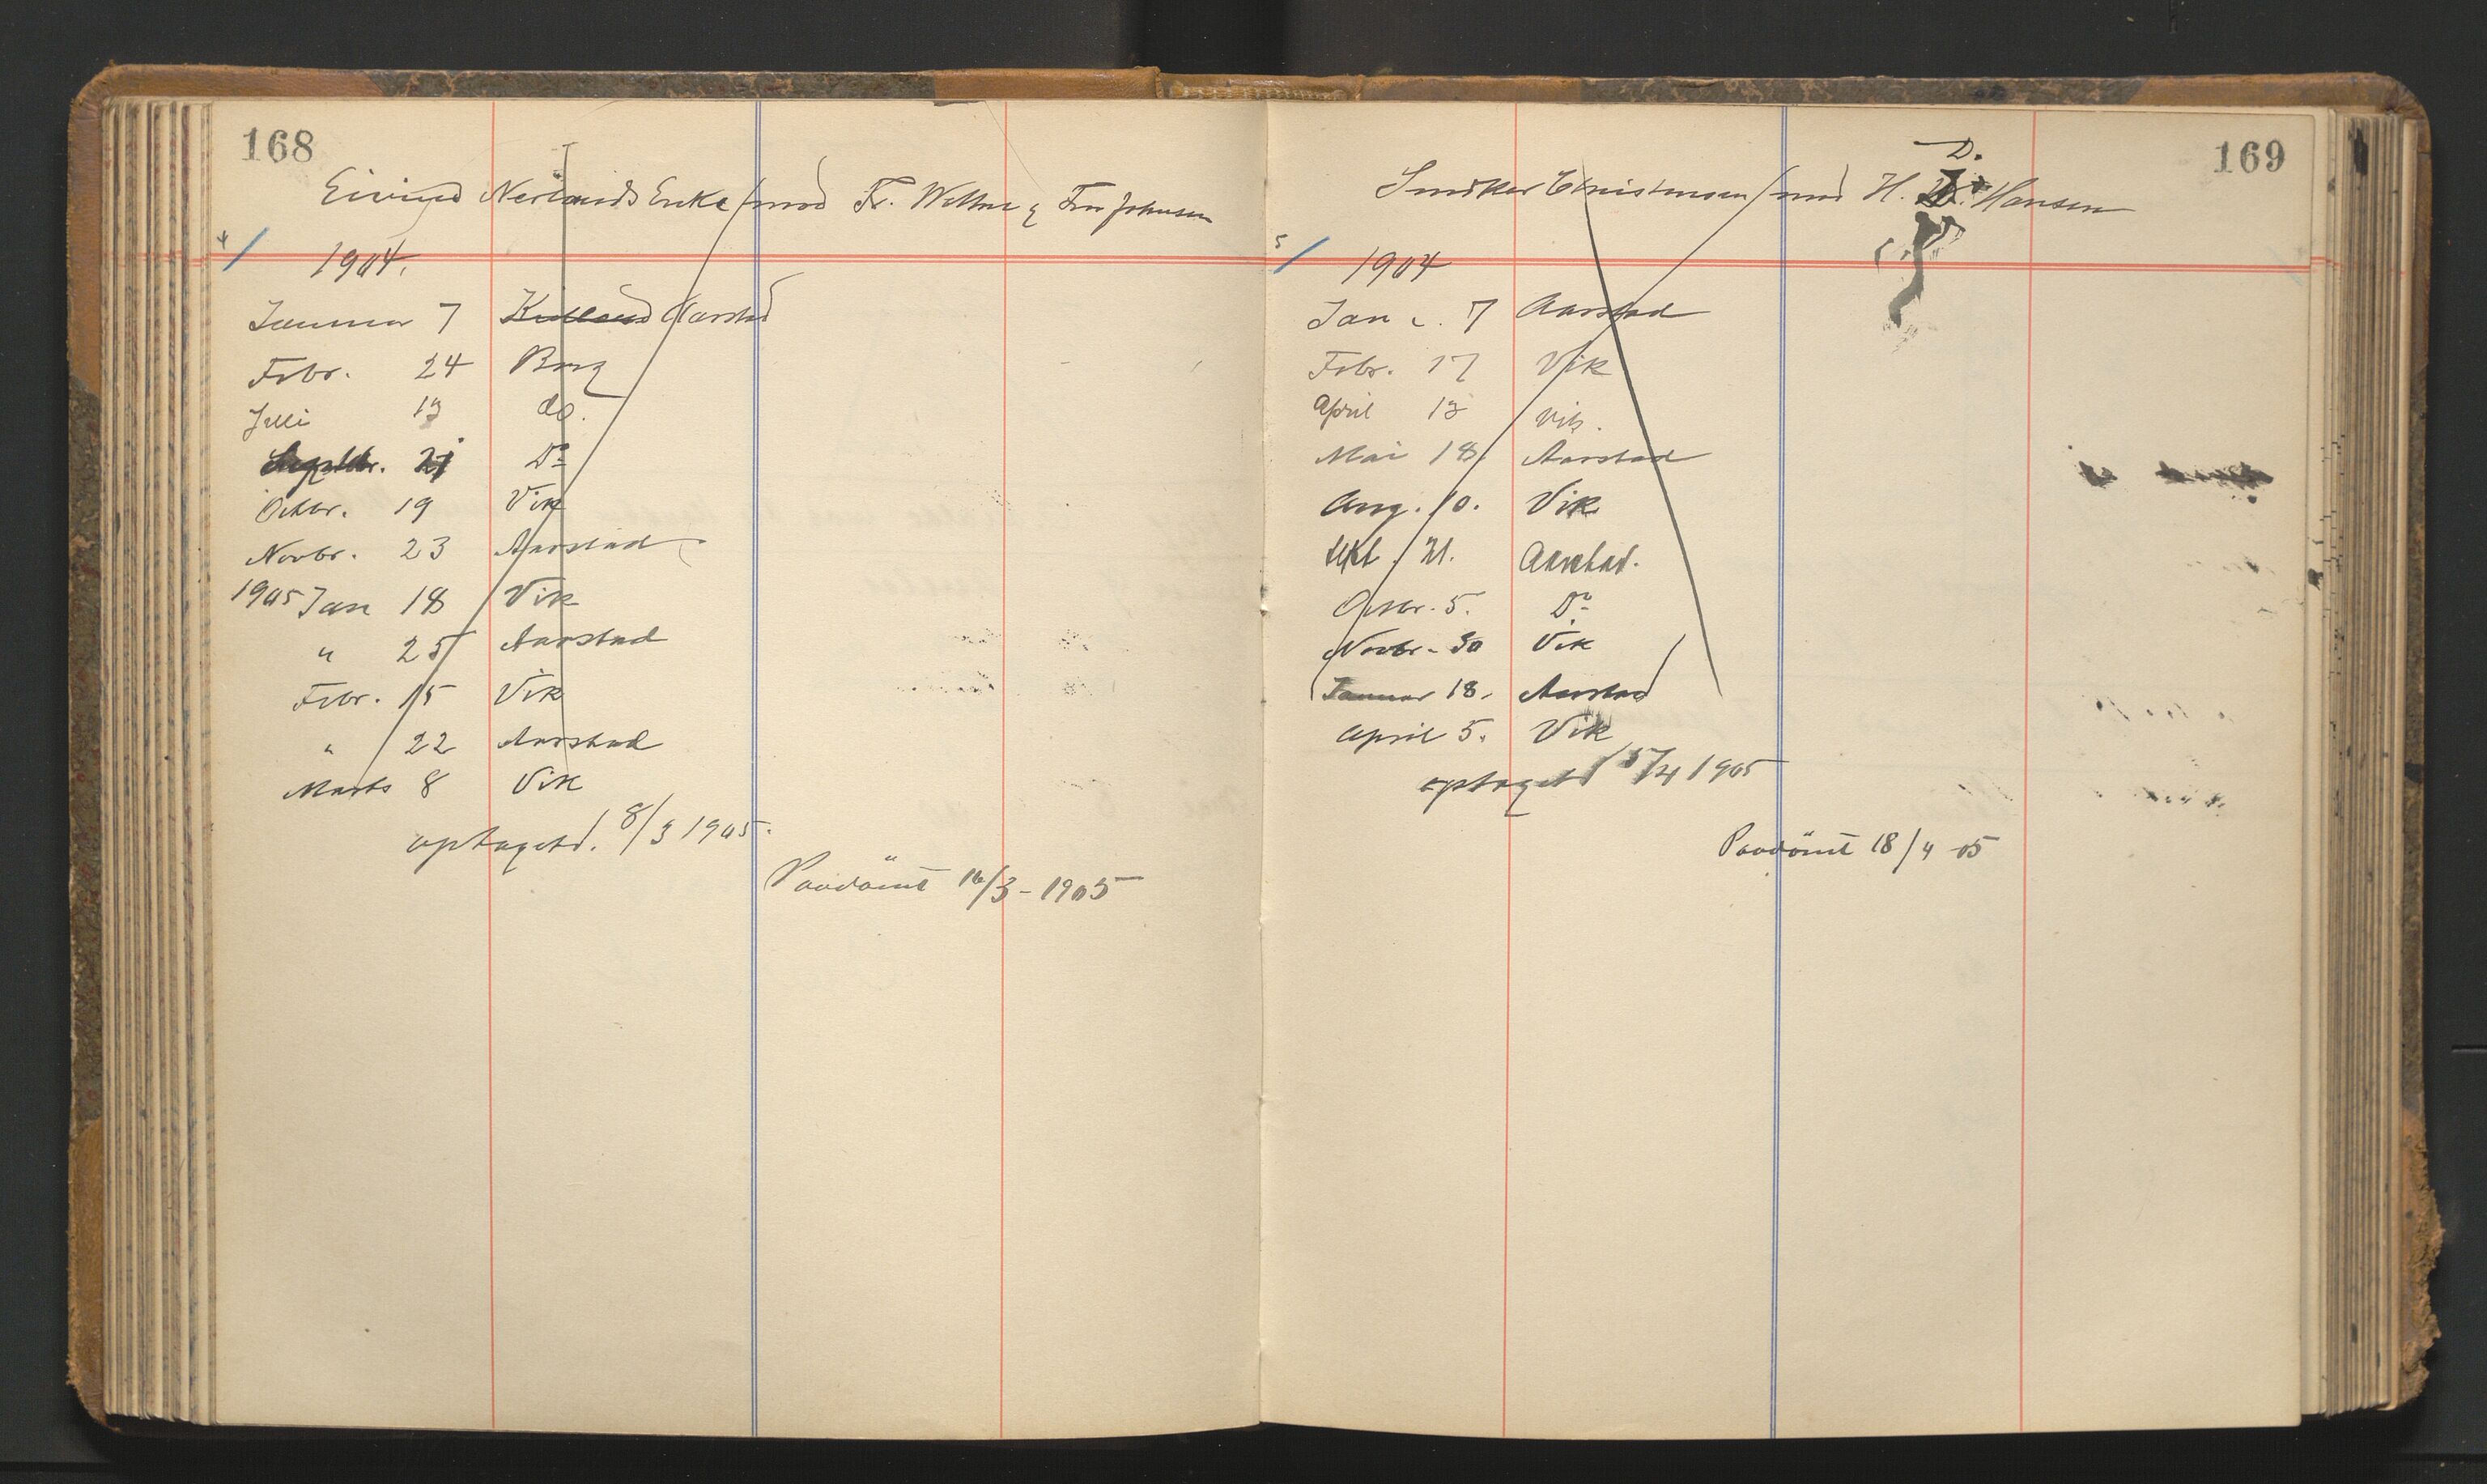 168
Eivind Nerlands Enke / mod Fr. Weltne & Fru Johnsen
4/ 1904.
Januar 7 Aarstad
Febr. 24 Borg
Juli 13 do.
Septbr. 21 Do
Octbr. 19 Vik
Novbr. 23 Aarstad
1905 Jan 18 Vik
" 25 Aarstad
Febr. 15 Vik
" 22 Aarstad
Marts 8 Vik
optaget d. 8/3 1905.
Paadömt 16/3 - 1905
169
Christensen / mod H. D. Hansen
5/ 1904
Jan 7 Aarstad
Febr. 17 Vik
April 13 Vik.
Mai 18 Aarstad
Aug. 10. Vik
Sept. 21. Aarstad.
Octbr. 5. Do
Novbr. 30 Vik
Januar 18. Aarstad
April 5. Vik
optaget d 5/4 1905
Paadömt 18/4 05